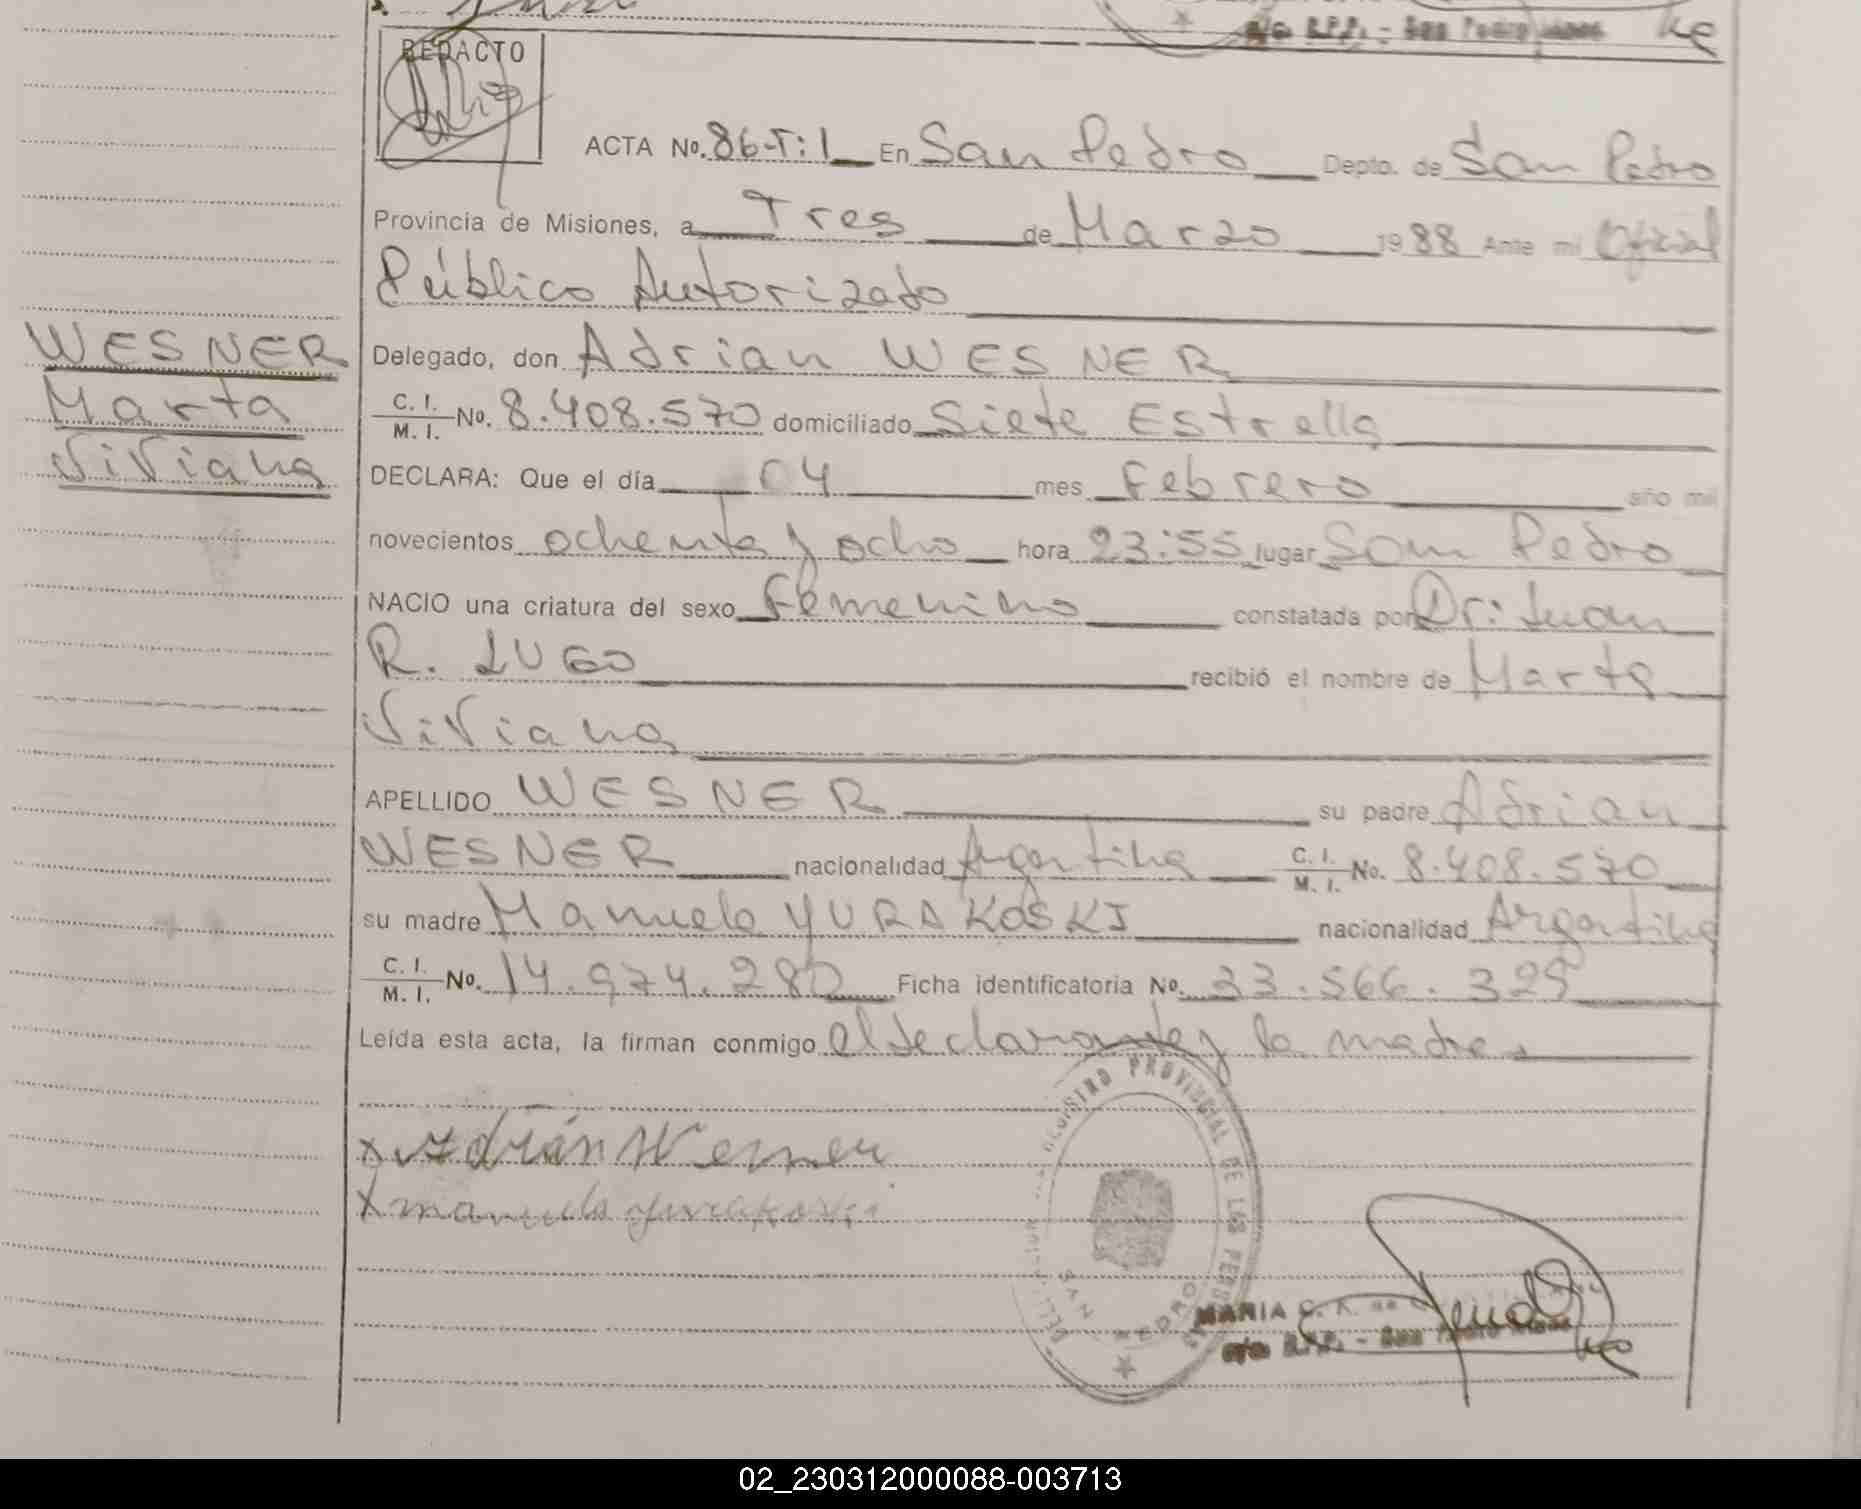 REDACTO
ACTA No. 86-T:I En San Pedro Depto. de San Pedro
Provincia de Misiones, a Tres de Marzo 1988 Ante mi Oficial
Público Autorizado
WESNER
Delegado, don Adrian WESNER
Marta
C. I. / M. I. No. 8.408.570 domiciliado Siete Estrella
Viviana
DECLARA: Que el día 04 mes Febrero año mil
novecientos ochenta y ocho hora 23:55 lugar San Pedro
NACIO una criatura del sexo Femenino constatada por Dr: Juan
R. LUGO recibió el nombre de Marta
Viviana
APELLIDO WESNER su padre Adrian
WESNER nacionalidad Argentina C. I. / M. I. No. 8.408.570
su madre Manuela YURAKOSKI nacionalidad Argentina
C. I. / M. I. No. 14.974.280 Ficha identificatoria No. 33.566.325
Leída esta acta, la firman conmigo el declarante y la madre
REGISTRO PROVINCIAL DE LAS PERSONAS
SAN PEDRO
x Adrián Wesner
x manuela yurakoski
MARIA
San Pedro
02_230312000088-003713